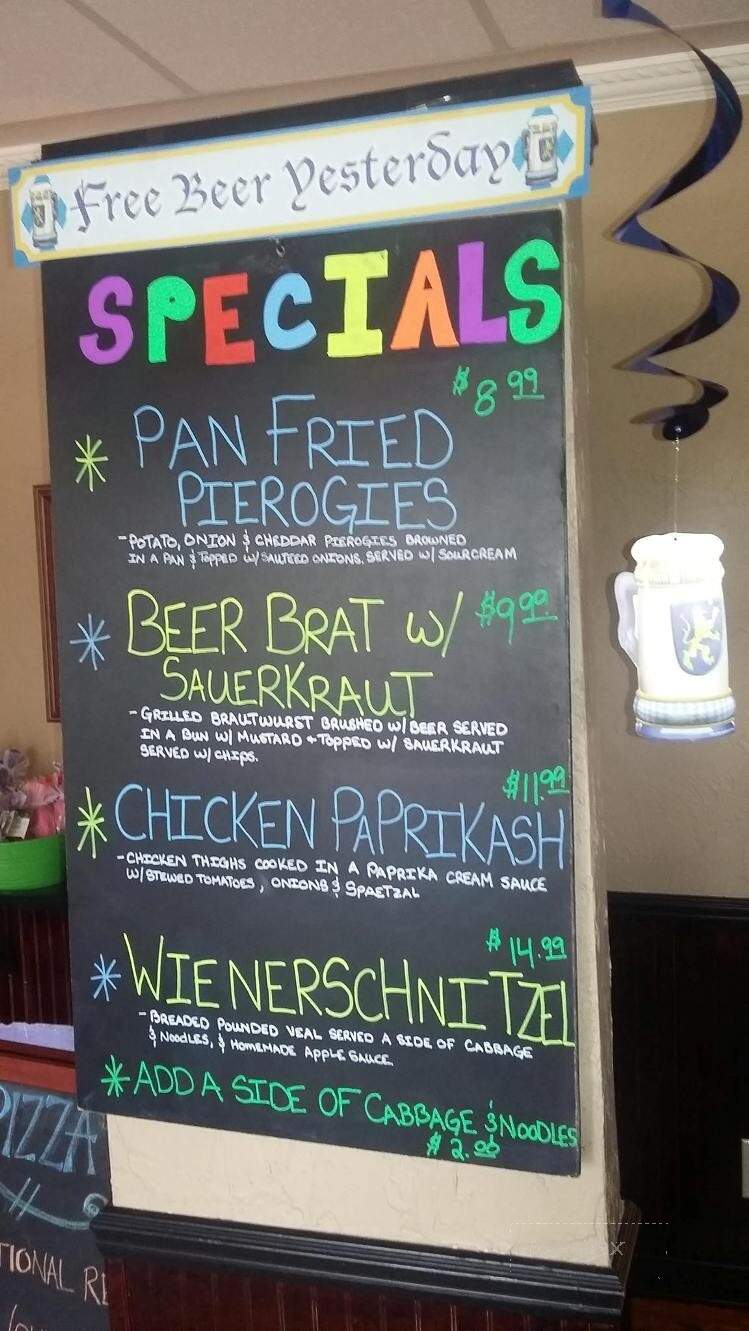 Free Beer Yesterday
SPECIALS
$8.99
* PAN FRIED
PIEROGIES
- POTATO, ONION & CHEDDAR PIEROGIES BROWNED
IN A PAN & TOPPED W/ SAUTEED ONIONS. SERVED W/ SOURCREAM
* BEER BRAT W/ $9.99
SAUERKRAUT
- GRILLED BRAUTWURST BRUSHED W/ BEER SERVED
IN A BUN W/ MUSTARD + TOPPED W/ SAUERKRAUT
SERVED W/ CHIPS.
$11.99
* CHICKEN PAPRIKASH
- CHICKEN THIGHS COOKED IN A PAPRIKA CREAM SAUCE
W/ STEWED TOMATOES, ONIONS & SPAETZAL
$14.99
* WIENERSCHNITZEL
- BREADED POUNDED VEAL SERVED A SIDE OF CABBAGE
& NOODLES, & HOMEMADE APPLE SAUCE.
* ADD A SIDE OF CABBAGE & NOODLES
$2.00
PIZZA
TIONAL RE